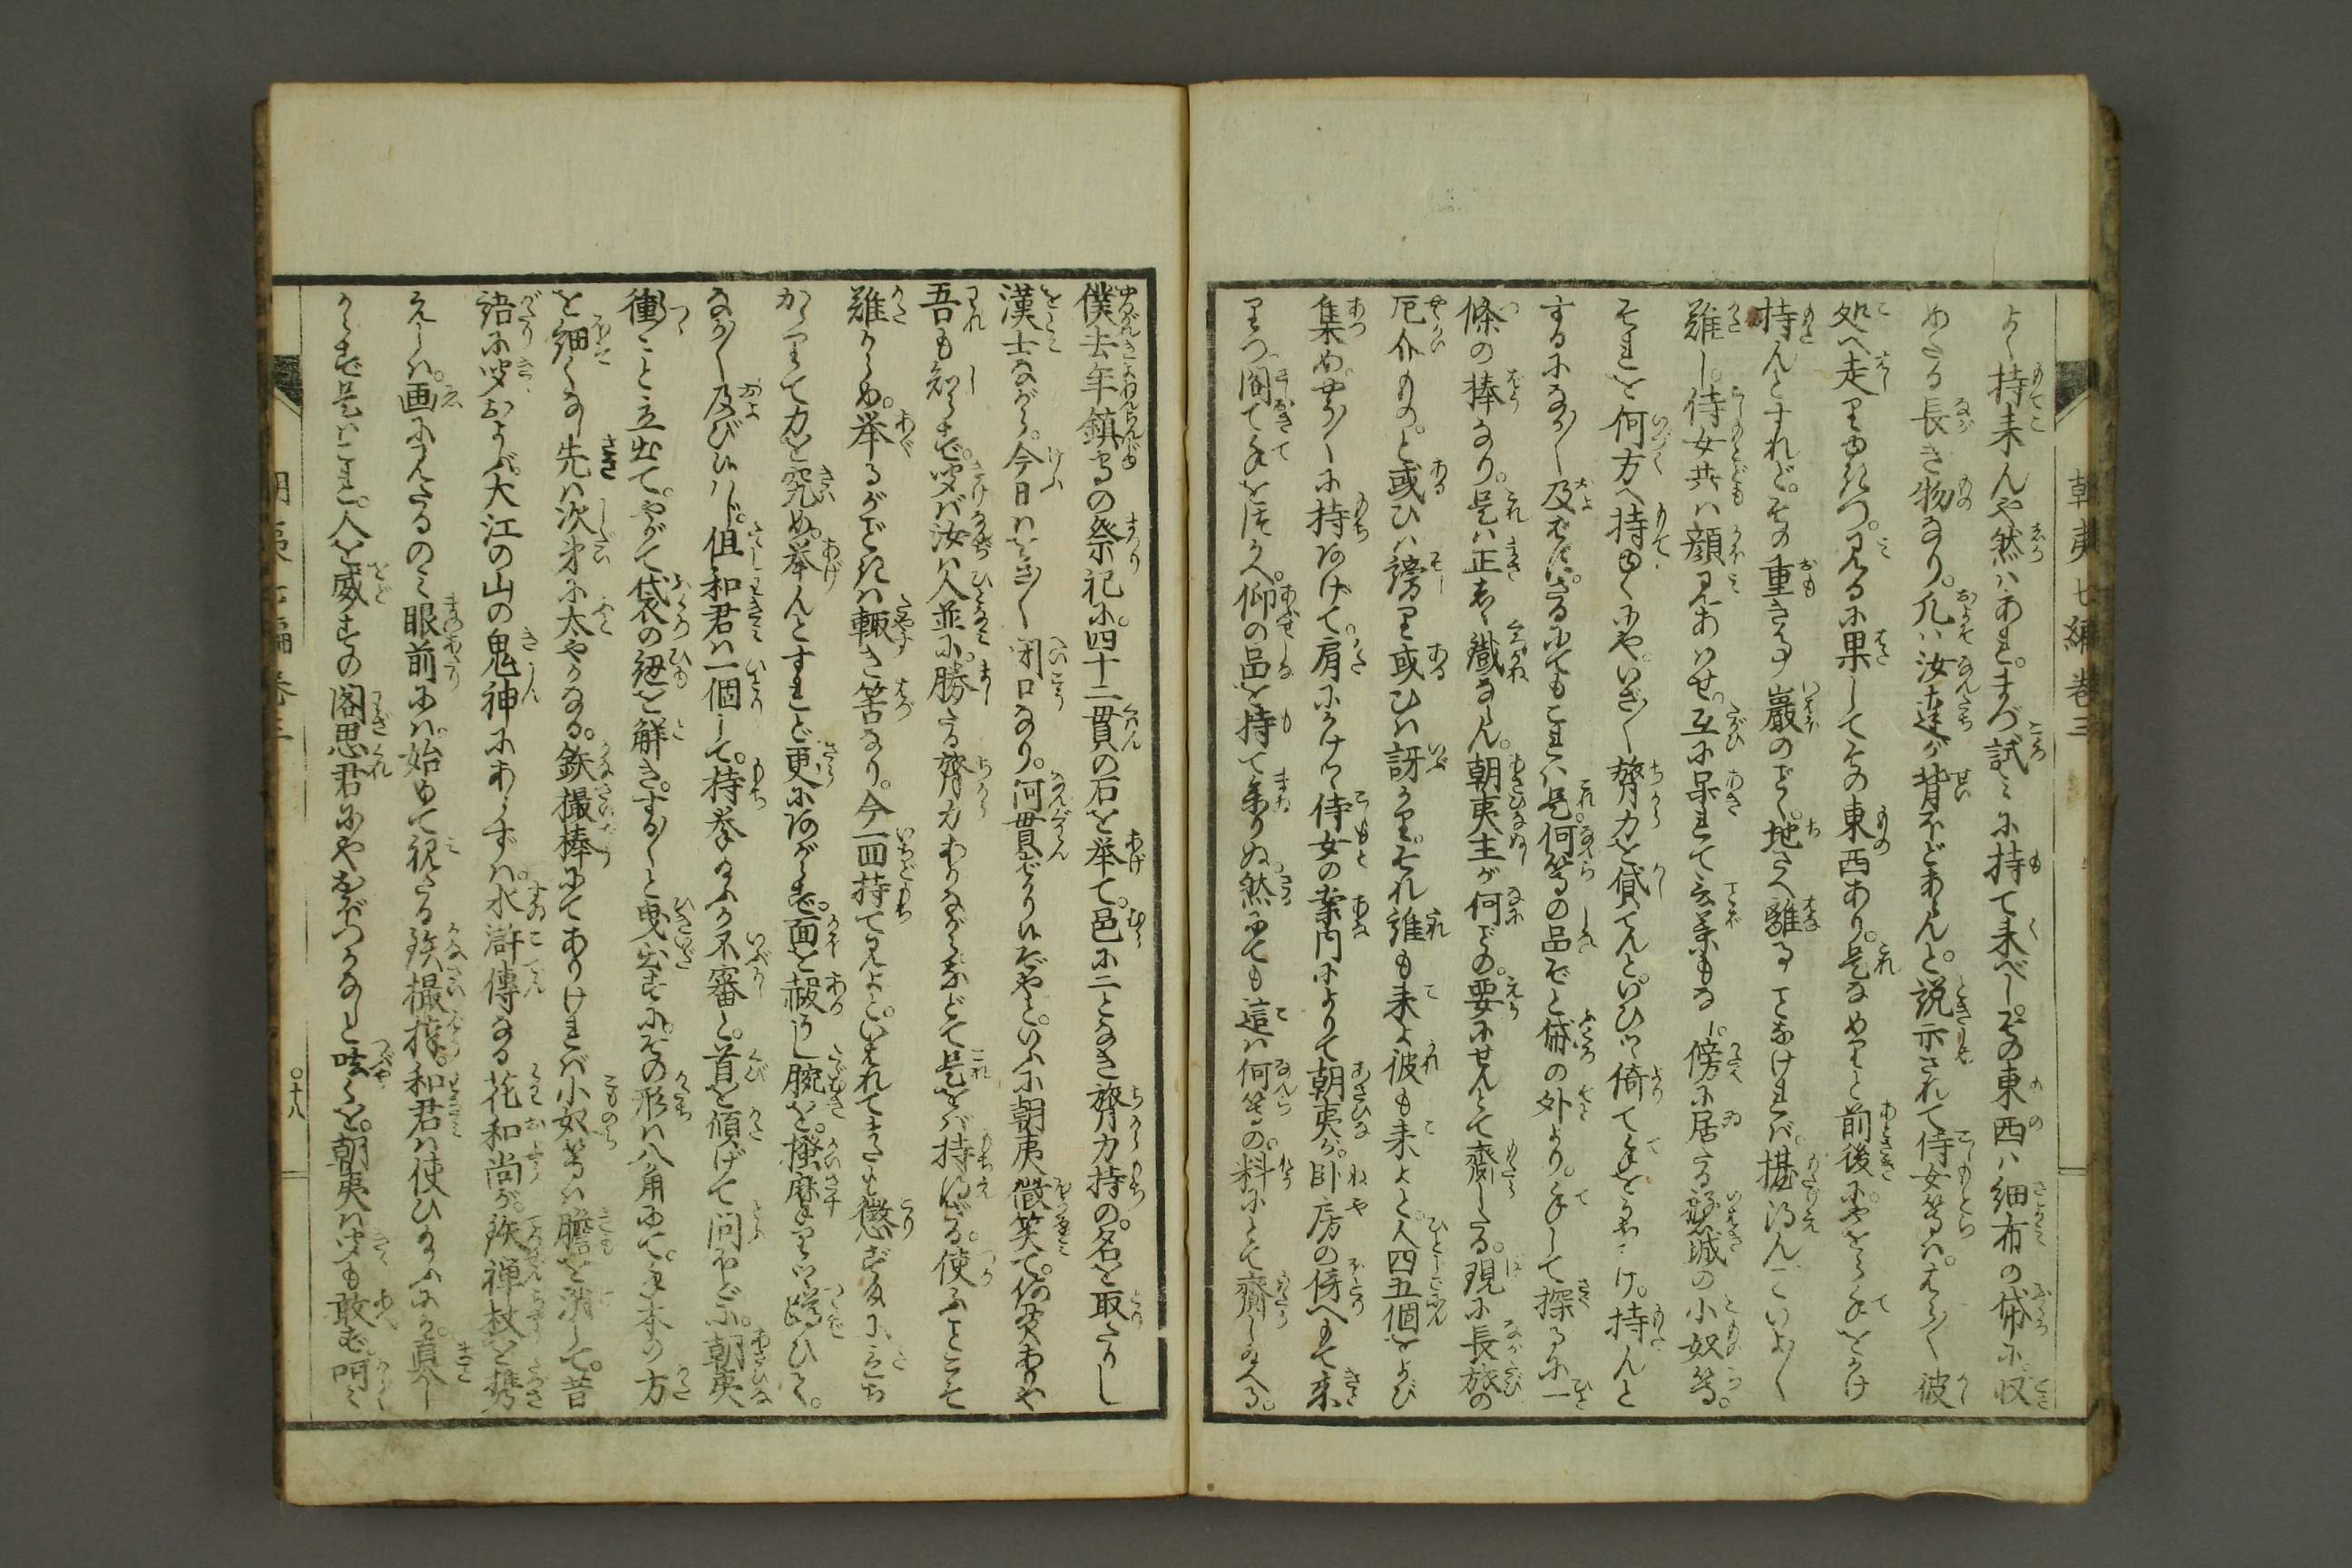 朝夷七編巻三
よく持来んや然はあれまづ試に持て来べしその東西は細布の袋に収
めたる長き物なり。凡汝達が背ほどあらん。と説示されて侍女等は。はら〳〵彼
処へ走りゆきつ。見るに果してその東西あり。是なめりと前後にやをら手をかけ
持んとすれど。その重き事巌のごとく。地さへ離るゝことなければ。擡得んこといよ〳〵
難し。侍女共は顔見あはせ。互に呆れて言葉もなし。傍に居たる磐城の小奴等。
それを何方へ持ゆくにや。いざ〳〵膂力を貸てんと。いひつゝ倚て手をかけ。持んと
するになか〳〵及ばず。さるにてもこれは是。何等の品ぞと袋の外より。手して探るに一
條の棒なり。是は正しく鐵ならん。朝夷主が何どの。要にせんとて齎したる。現に長旅の
厄介もの。と或ひは謗り或ひは訝かり。それ誰も来よ彼も来よと。人四五個をよび
集め。やう〳〵に持あげて。肩にかけつゝ侍女の案内によりて朝夷が。臥房の傍へもて来
りつ。閣て手をつかへ。仰の品を持て参りぬ。然るにても這は何等の。料にとて齎し給へる。
僕去年鎮守の祭祀に。四十二貫の石を挙て。邑に二となき膂力持の。名を取たりし
漢士ながら。今日はまことに〳〵閉口なり。何貫ばかり候ぞや。といふに朝夷微笑て。何貫ありや
吾も知らず。聞けば汝は人並に。勝たる膂力ありながら。などて是をば持得ざる。使ふことこそ
難からめ。挙るがごときは輙き筈なり。今一回持て見よ。といはれてまたも懲ずまに立ち
かゝりて力を究め。挙んとすれど更にあがらず。面を赧うし腕を。掻摩りつゝ鳴ひく。
なか〳〵及び候はず。但和君は一個して。持挙給ふか不審と。首を傾げて問ふほどに。朝夷
衝と立出て。やがて袋の紐を解き。する〳〵と曳出すに。その形は八角にて。手本の方
を細くなし先は次第に太やかなる。鉄撮棒にてありければ小奴等は膽を消して。昔
語に聞およぶ。大江の山の鬼神にあらずは。水滸傳なる花和尚が。鉄禅杖を携
えしは。画に見たるのみ眼前には。始めて視たる鉄撮棒。和君は使ひ給ふにか。真し
からず是はこれ。人を威すの閣思君にやおぼつかなしと呟くを。朝夷は聞も敢ず。呵々
朝夷七編巻三
〇十八